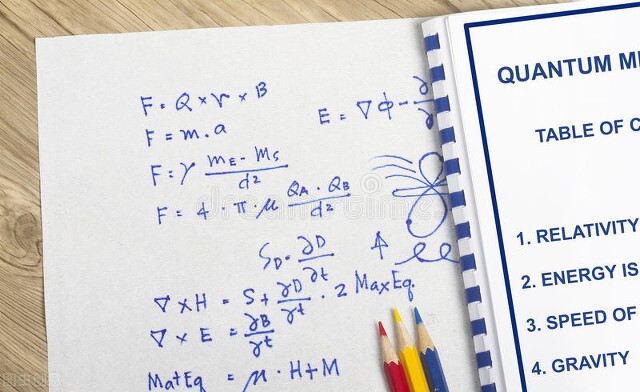 F = Q × v × B
F = m . a
F = γ (mE - MS) / d²
F = 4 · π · μ (QA · QB) / d²
E = ∇ϕ -
SD = ∂D / ∂t
∇ × H = S + ∂D / ∂t · 2 MaxEq
∇ × E = ∂B / ∂t
MatEq = μ · H + M
QUANTUM M
TABLE OF C
1. RELATIVITY
2. ENERGY IS
3. SPEED OF
4. GRAVITY
dreamstime